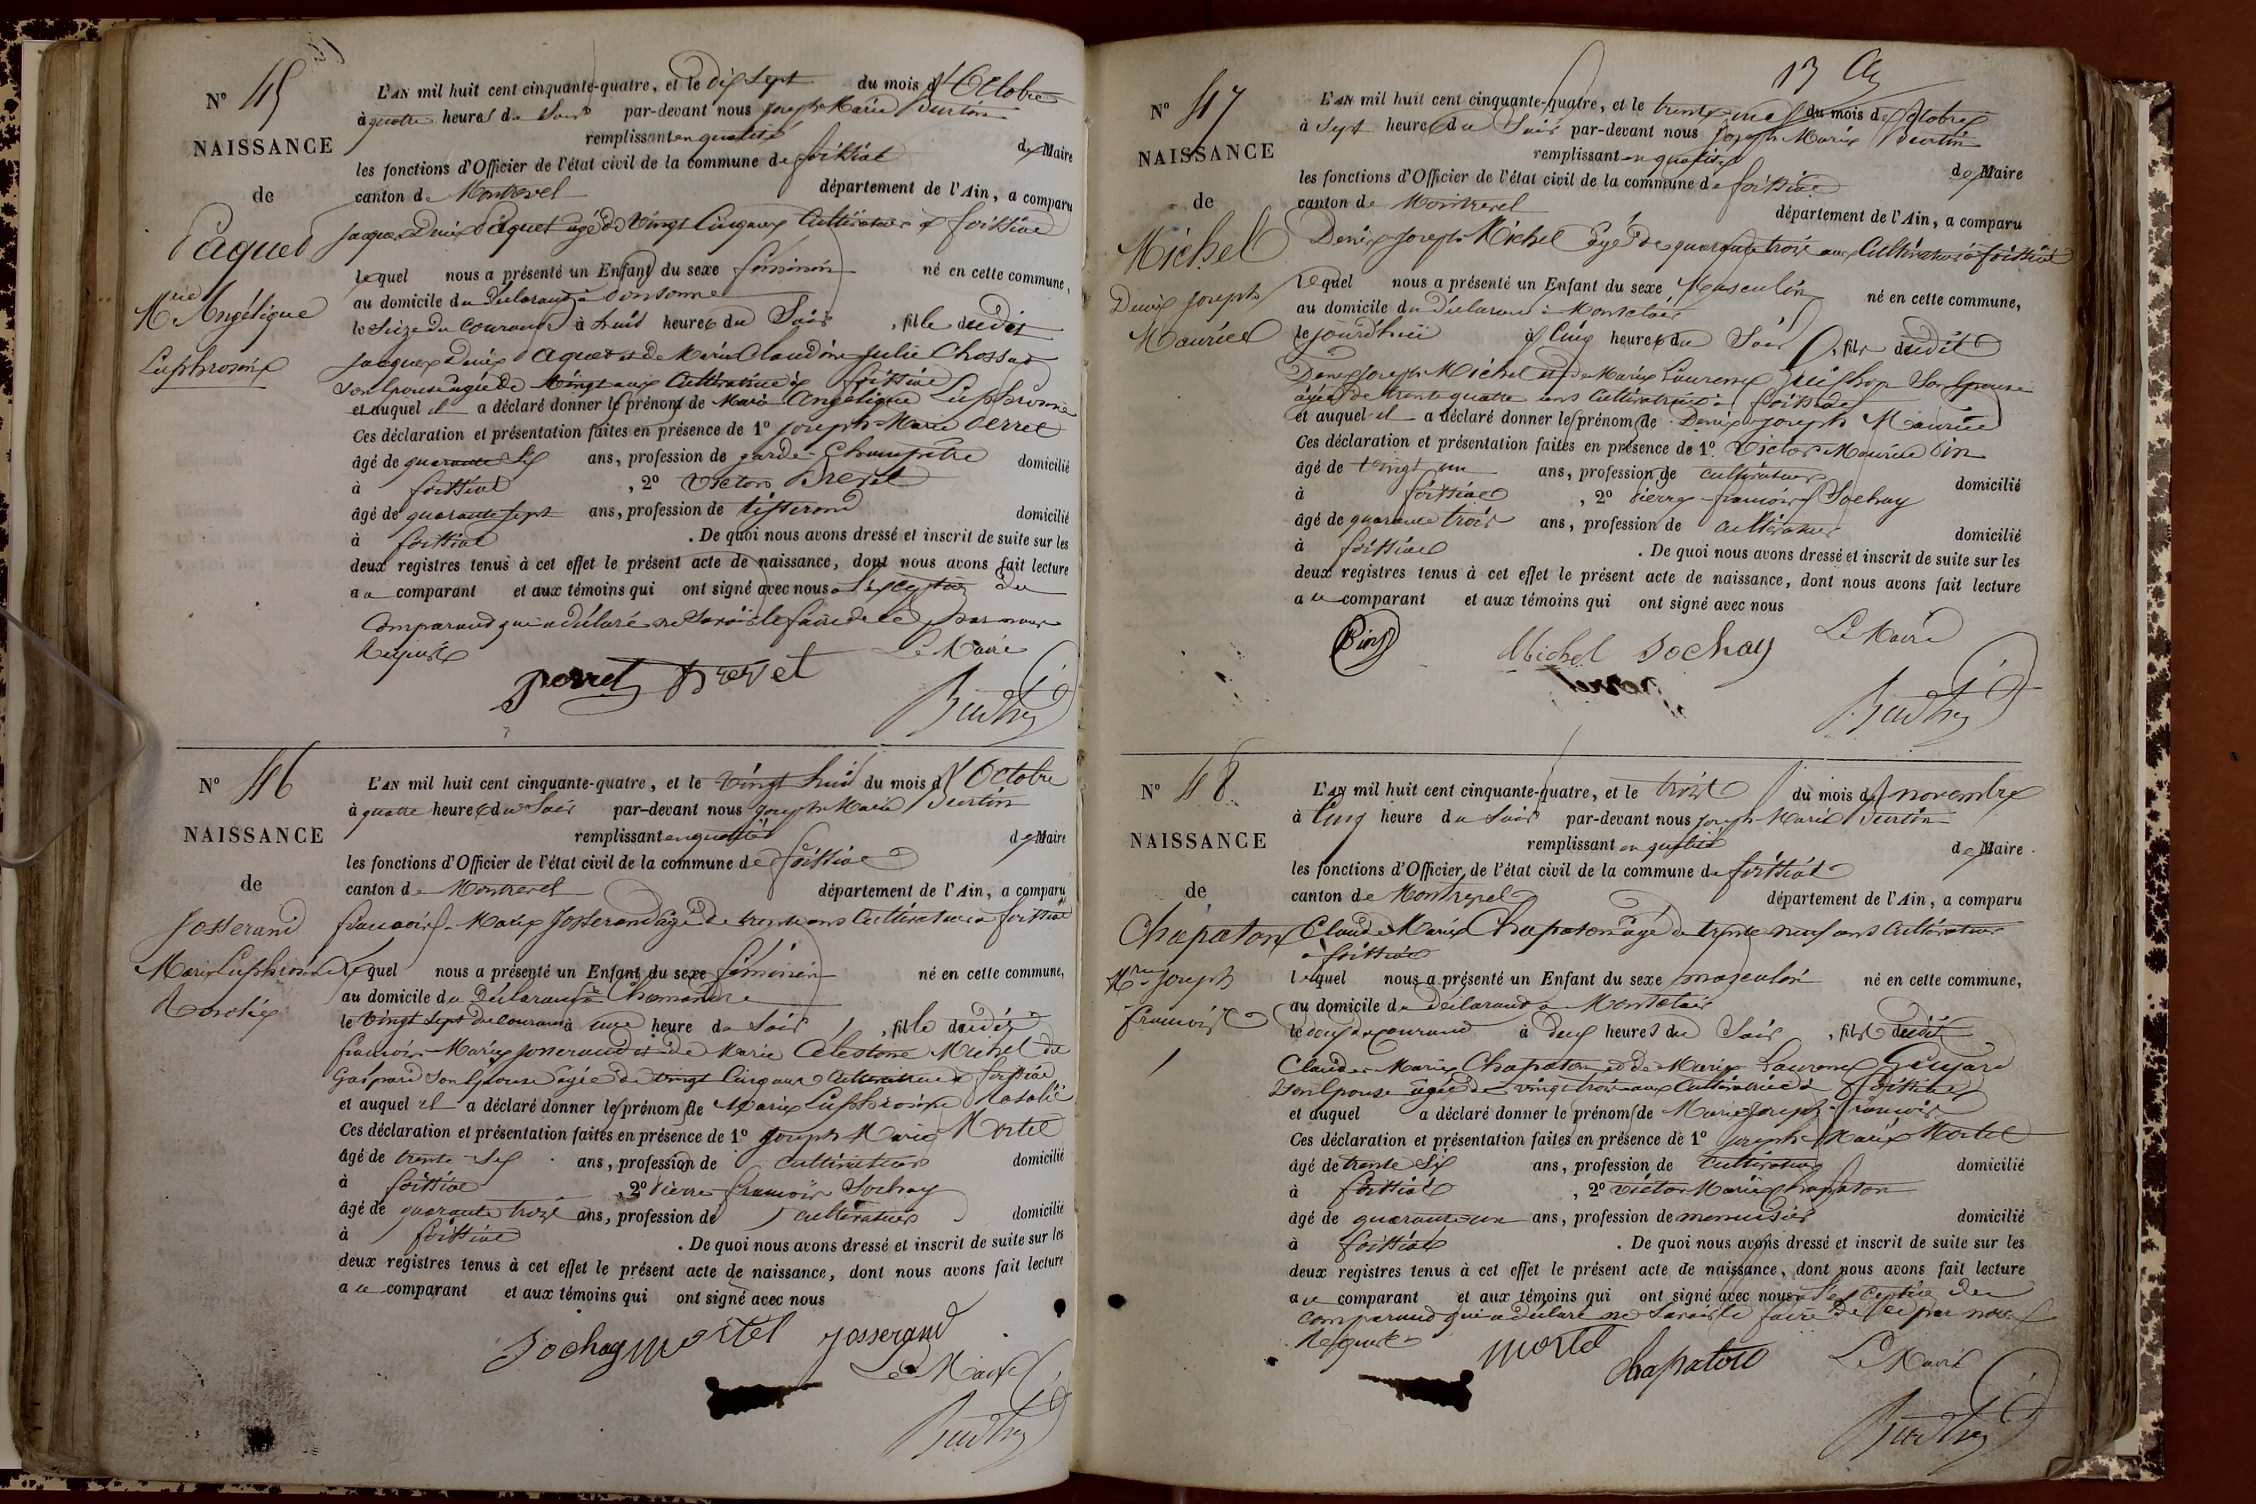 N° 45
NAISSANCE
de
Paquet
Mie Angélique
Euphrosine
L'AN mil huit cent cinquante-quatre, et le dix sept du mois d'Octobre
à quatre heures du Soir par-devant nous Joseph Marie Burtin
remplissant en qualité de Maire
les fonctions d'Officier de l'état civil de la commune de foissiat
canton de Montrevel département de l'Ain, a comparu
Jacques Denis Paquet agé de vingt Cinq ans Cultivateur à foissiat
lequel nous a présenté un Enfant du sexe féminin né en cette commune,
au domicile du déclarant à
le Seize du Courant à huit heures du Soir , fille dudit
Jacques Denis Paquet et de Marie Claudine Julie Chossat
Son Epouse agée de vingt ans Cultivatrice à foissiat
et auquel il a déclaré donner les prénoms de Marie Angélique Euphrosine
Ces déclaration et présentation faites en présence de 1° Joseph-Marie Perret
âgé de quarante Six ans, profession de garde-Champêtre domicilié
à foissiat , 2° Victor Brevet
âgé de quarante sept ans, profession de tisserand domicilié
à foissiat . De quoi nous avons dressé et inscrit de suite sur les
deux registres tenus à cet effet le présent acte de naissance, dont nous avons fait lecture
au comparant et aux témoins qui ont signé avec nous à l'exception du
Comparant qui a déclaré ne Savoir le faire de ce par nous
Requis
Le Maire
perret Brevet
Burtin
N° 46
NAISSANCE
de
Josserand
Marie Euphrosine
Rosalie
L'AN mil huit cent cinquante-quatre, et le vingt huit du mois d'Octobre
à quatre heures du Soir par-devant nous Joseph Marie Burtin
remplissant en qualité de Maire
les fonctions d'Officier de l'état civil de la commune de foissiat
canton de Montrevel département de l'Ain, a comparu
françois-Marie Josserand agé de trente ans Cultivateur à foissiat
Lequel nous a présenté un Enfant du sexe féminin né en cette commune,
au domicile du déclarant à Chamandre
le vingt sept du courant à une heure du Soir , fille dudit
françois-Marie Josserand et de Marie Célestine Michel dit
Gaspard Son Epouse agée de vingt Cinq ans Cultivatrice à foissiat
et auquel il a déclaré donner les prénoms de Marie Euphrosine Rosalie
Ces déclaration et présentation faites en présence de 1° Joseph Marie Mortel
âgé de trente-Six ans, profession de cultivateur domicilié
à foissiat , 2° Pierre françois Sochay
âgé de quarante trois ans, profession de cultivateur domicilié
à foissiat . De quoi nous avons dressé et inscrit de suite sur les
deux registres tenus à cet effet le présent acte de naissance, dont nous avons fait lecture
au comparant et aux témoins qui ont signé avec nous
Sochay mortel josserand
Le Maire
Burtin
13
N° 47
NAISSANCE
de
Michel
Denis Joseph
Maurice
L'AN mil huit cent cinquante-quatre, et le trente-un du mois d'octobre
à Sept heures du Soir par-devant nous Joseph Marie Burtin
remplissant en qualité de Maire
les fonctions d'Officier de l'état civil de la commune de foissiat
canton de Montrevel département de l'Ain, a comparu
Denis Joseph Michel âgé de quarante trois ans Cultivateur à foissiat
lequel nous a présenté un Enfant du sexe Masculin né en cette commune,
au domicile du déclarant à Montclair
le jourd'hui à Cinq heures du Soir , fils dudit
Denis Joseph Michel et de Marie Laurence Son Epouse
âgée de trente quatre ans Cultivatrice à foissiat
et auquel il a déclaré donner les prénoms de Denis Joseph Maurice
Ces déclaration et présentation faites en présence de 1° Victor Maurice Pin
âgé de vingt un ans, profession de cultivateur domicilié
à foissiat , 2° Pierre-françois Sochay
âgé de quarante trois ans, profession de cultivateur domicilié
à foissiat . De quoi nous avons dressé et inscrit de suite sur les
deux registres tenus à cet effet le présent acte de naissance, dont nous avons fait lecture
au comparant et aux témoins qui ont signé avec nous
Pin Michel Sochay Le Maire
Burtin
N° 48
NAISSANCE
de
Chapaton
Mie Joseph
françois
L'AN mil huit cent cinquante-quatre, et le trois du mois de novembre
à Cinq heure du Soir par-devant nous Joseph-Marie Burtin
remplissant en qualité de Maire
les fonctions d'Officier de l'état civil de la commune de foissiat
canton de Montrevel département de l'Ain, a comparu
Claude Marie Chapaton agé de trente neuf ans Cultivateur
à foissiat
lequel nous a présenté un Enfant du sexe masculin né en cette commune,
au domicile du déclarant à Montclair
le deux du courant à deux heures du Soir , fils dudit
Claude Marie Chapaton et de Marie Laurence
Son Epouse agée de vingt trois ans Cultivatrice à foissiat
et auquel a déclaré donner le prénoms de Marie Joseph françois
Ces déclaration et présentation faites en présence de 1° Joseph Marie Mortel
âgé de trente Six ans, profession de Cultivateur domicilié
à foissiat , 2° Victor Marie Chapaton
âgé de quarante-un ans, profession de menuisier domicilié
à foissiat . De quoi nous avons dressé et inscrit de suite sur les
deux registres tenus à cet effet le présent acte de naissance, dont nous avons fait lecture
au comparant et aux témoins qui ont signé avec nous à l'exception du
comparant qui a déclaré ne Savoir le faire de ce par nous
Requis
mortel Chapaton Le Maire
Burtin